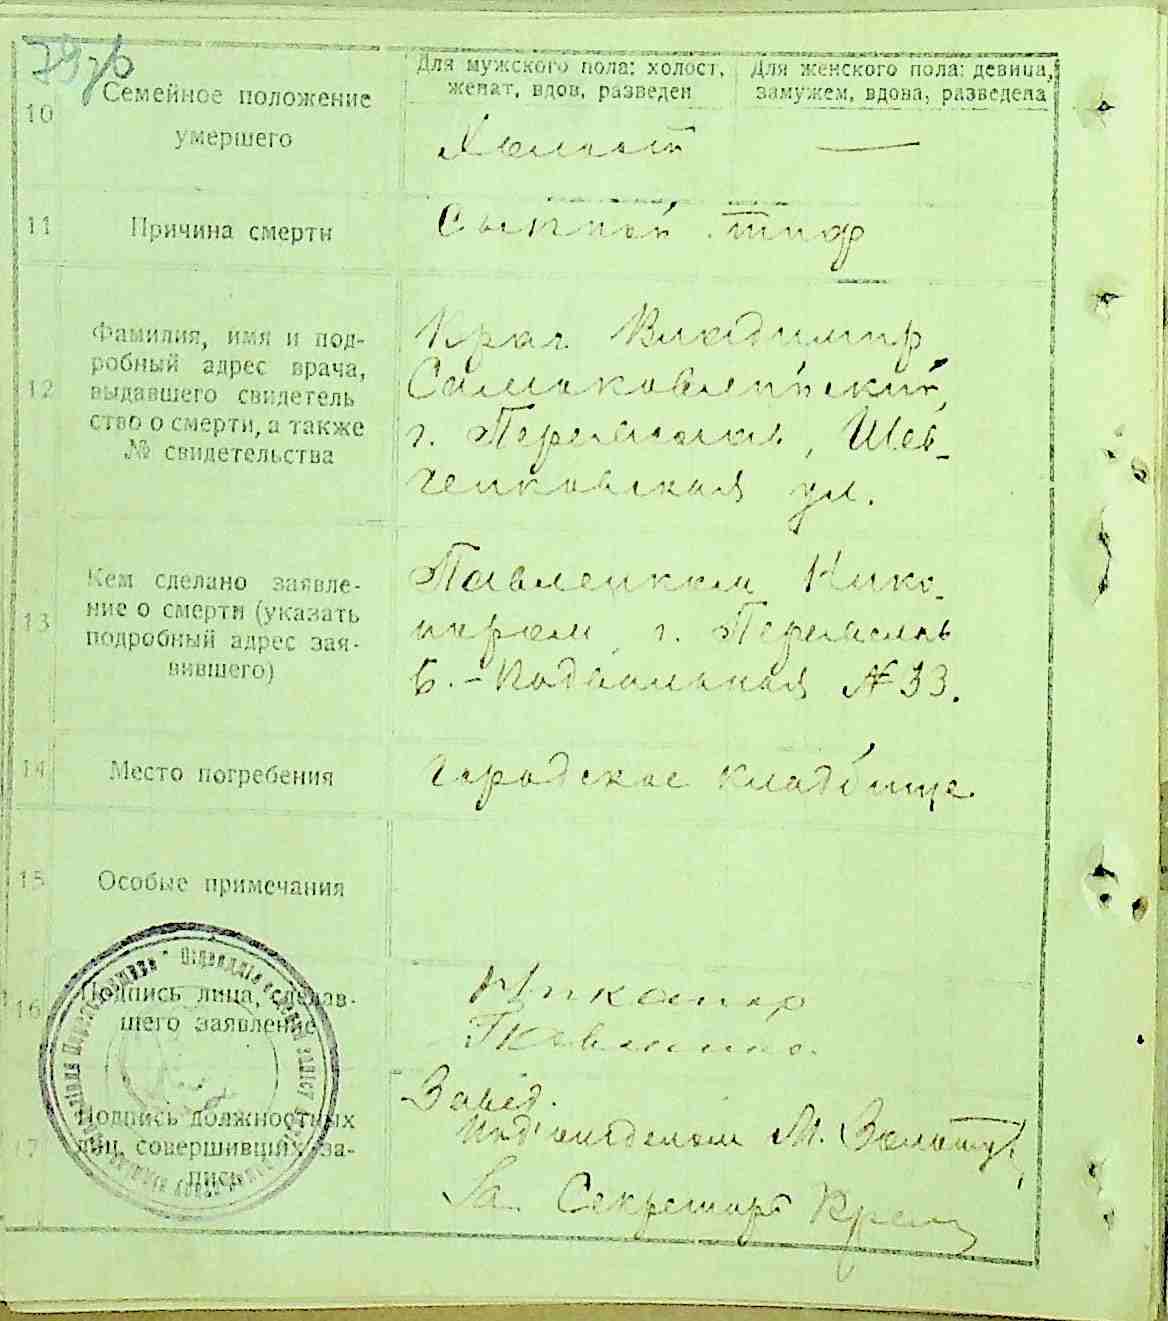 10
Семейное положение
умершего
Для мужского пола: холост,
женат, вдов, разведен
Для женского пола: девица,
замужем, вдова, разведена
Холост
—
11
Причина смерти
Сыпной тиф
12
Фамилия, имя и под-
робный адрес врача,
выдавшего свидетель
ство о смерти, а также
№ свидетельства
Врач Владимир
Самойловский,
г. Переяслав, Шев-
ченковская ул.
13
Кем сделано заявле-
ние о смерти (указать
подробный адрес зая-
вившего)
Павленком Ника-
нором г. Переяслав
Б.-Подвальная № 33.
14
Место погребения
Городское кладбище
15
Особые примечания
16
Подпись лица, сделав-
шего заявление
Никанор
Павленко.
17
Подпись должностных
лиц, совершивших за-
пись
Завед.
Под'отделом М.
За Секретаря